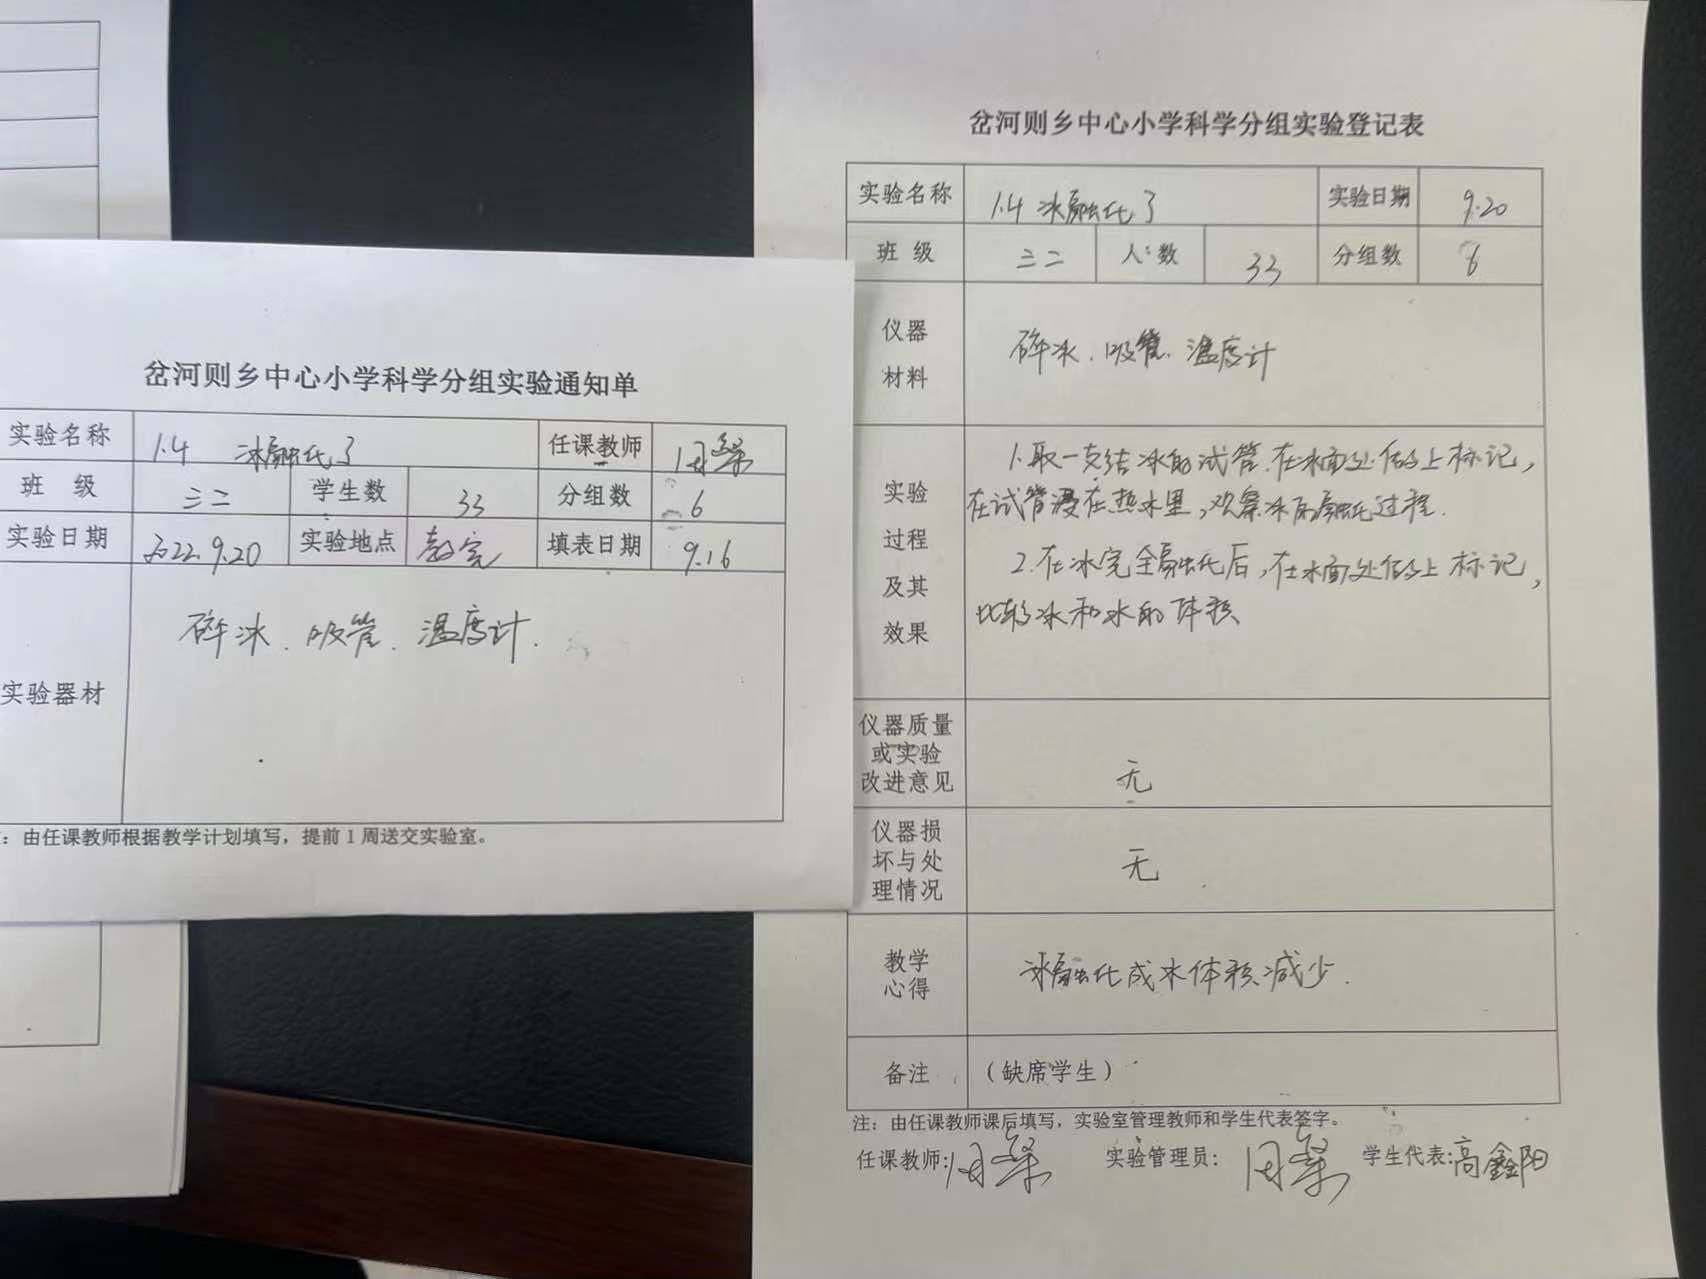 岔河则乡中心小学科学分组实验通知单
实验名称 1.4 冰融化了 任课教师
班 级 三二 学生数 33 分组数 6
实验日期 2022.9.20 实验地点 教室 填表日期 9.16
实验器材 碎冰、吸管、温度计.
：由任课教师根据教学计划填写，提前1周送交实验室。
岔河则乡中心小学科学分组实验登记表
实验名称 1.4 冰融化了 实验日期 9.20
班 级 三二 人:数 33 分组数 6
仪器
材料
碎冰、吸管、温度计
实验
过程
及其
效果
1.取一支结冰的试管.在冰面处做上标记，
在试管浸在热水里，观察冰的融化过程.
2.在冰完全融化后，在水面处做上标记，
比较冰和水的体积
仪器质量
或实验
改进意见
无
仪器损
坏与处
理情况
无
教学
心得
冰融化成水体积减少.
备注 （缺席学生）
注：由任课教师课后填写，实验室管理教师和学生代表签字。
任课教师: 实验管理员: 学生代表:高鑫阳